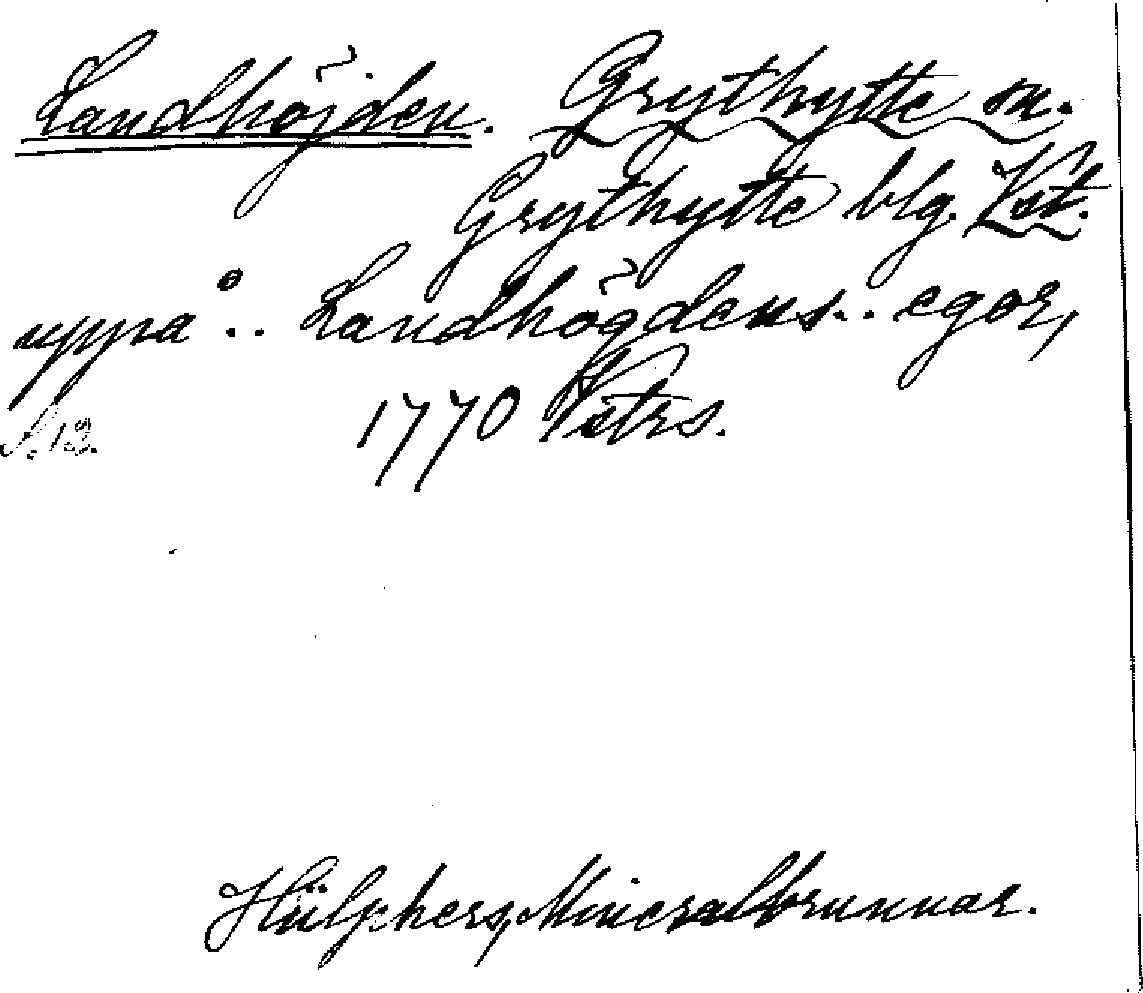 Landhöjden. Grythytte sn.
Grythytte blg. Vst.
uppå .. Landhögdens .. egor,
1770 Vstrs.
S. 12.
Hülphers, Mineralbrunnar.